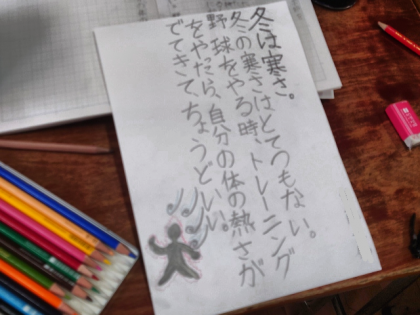 冬は寒さ。
冬の寒さはとてつもない。
野球をやる時、トレーニング
をやったら、自分の体の熱さが
でてきて、ちょうどいい。